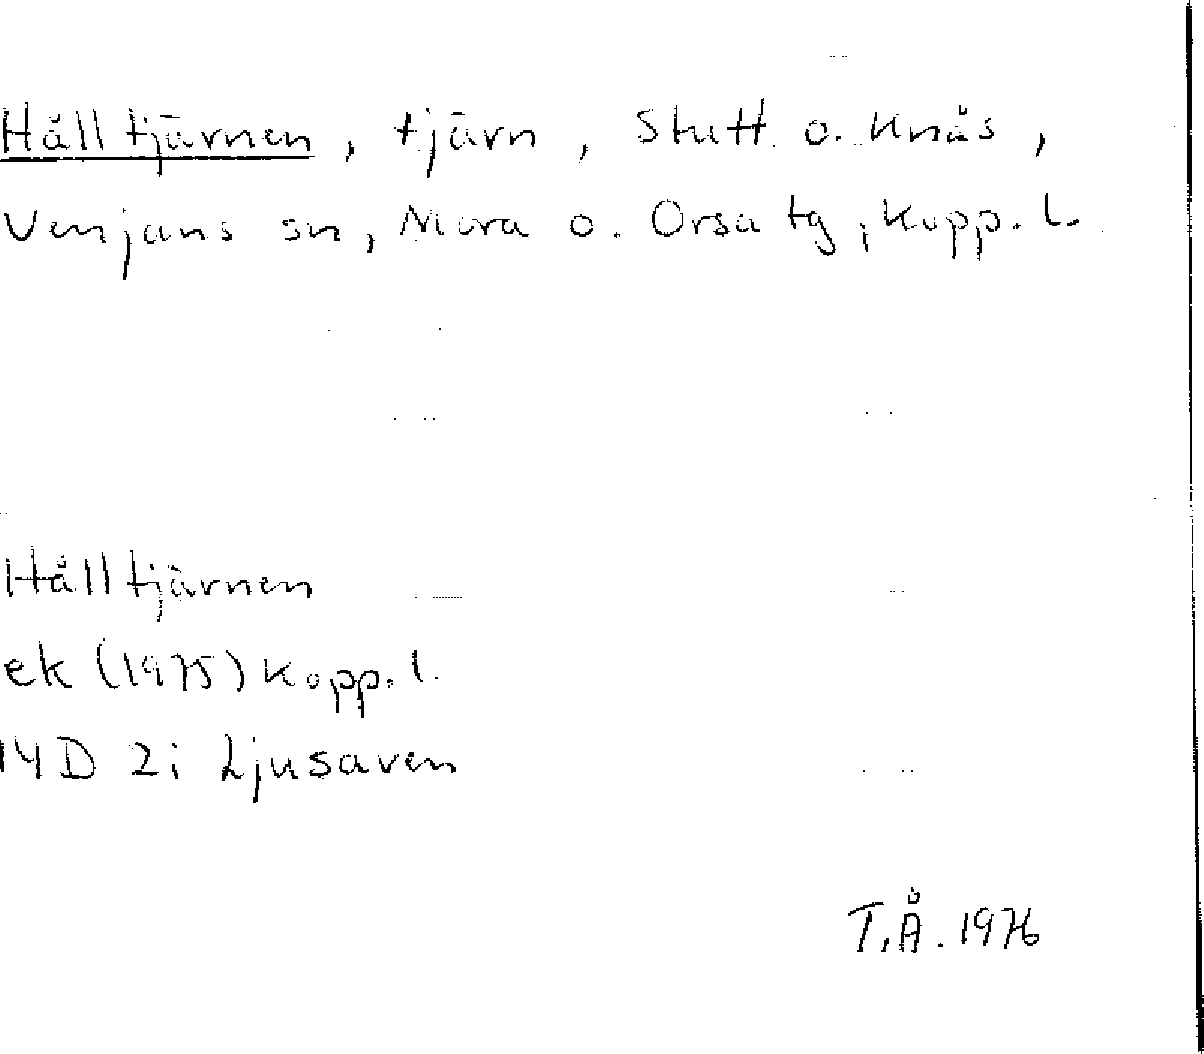 Hålltjärnen, tjärn, Slutt o. Knås,
Venjans sn, Mora o. Orsa tg, Kopp. l.
Hålltjärnen
ek (1975) Kopp. l.
14D 2i Ljusaven
T.Å. 1976